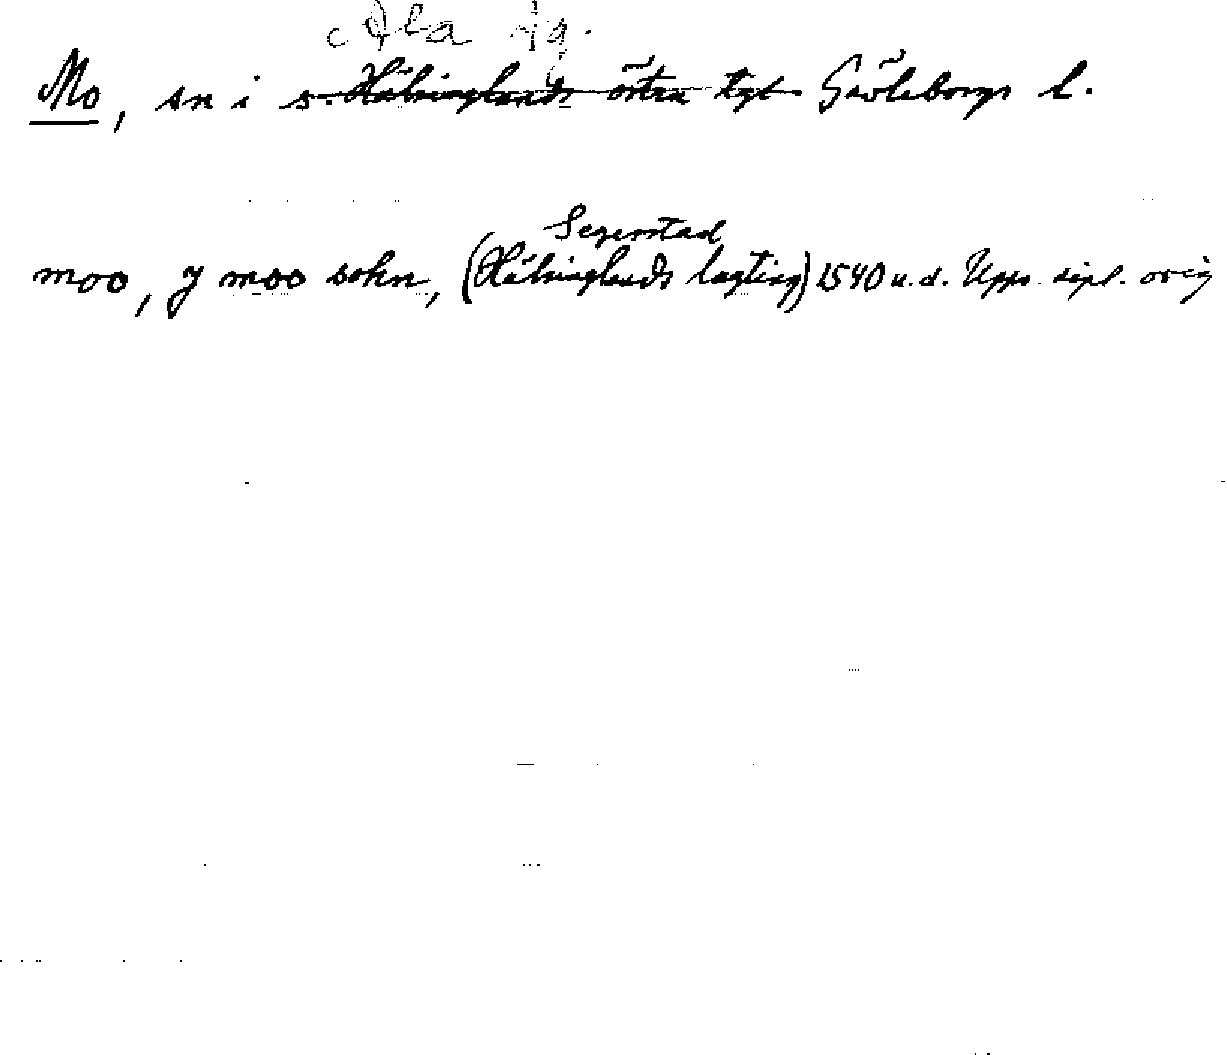 Ala tg.
Mo, sn i s. Hälsinglands östra tgt Gävleborgs l.
Segerstad
moo, y moo sokn, (Hälsinglands lagting) 1540 u.d. Upps. dipl. orig